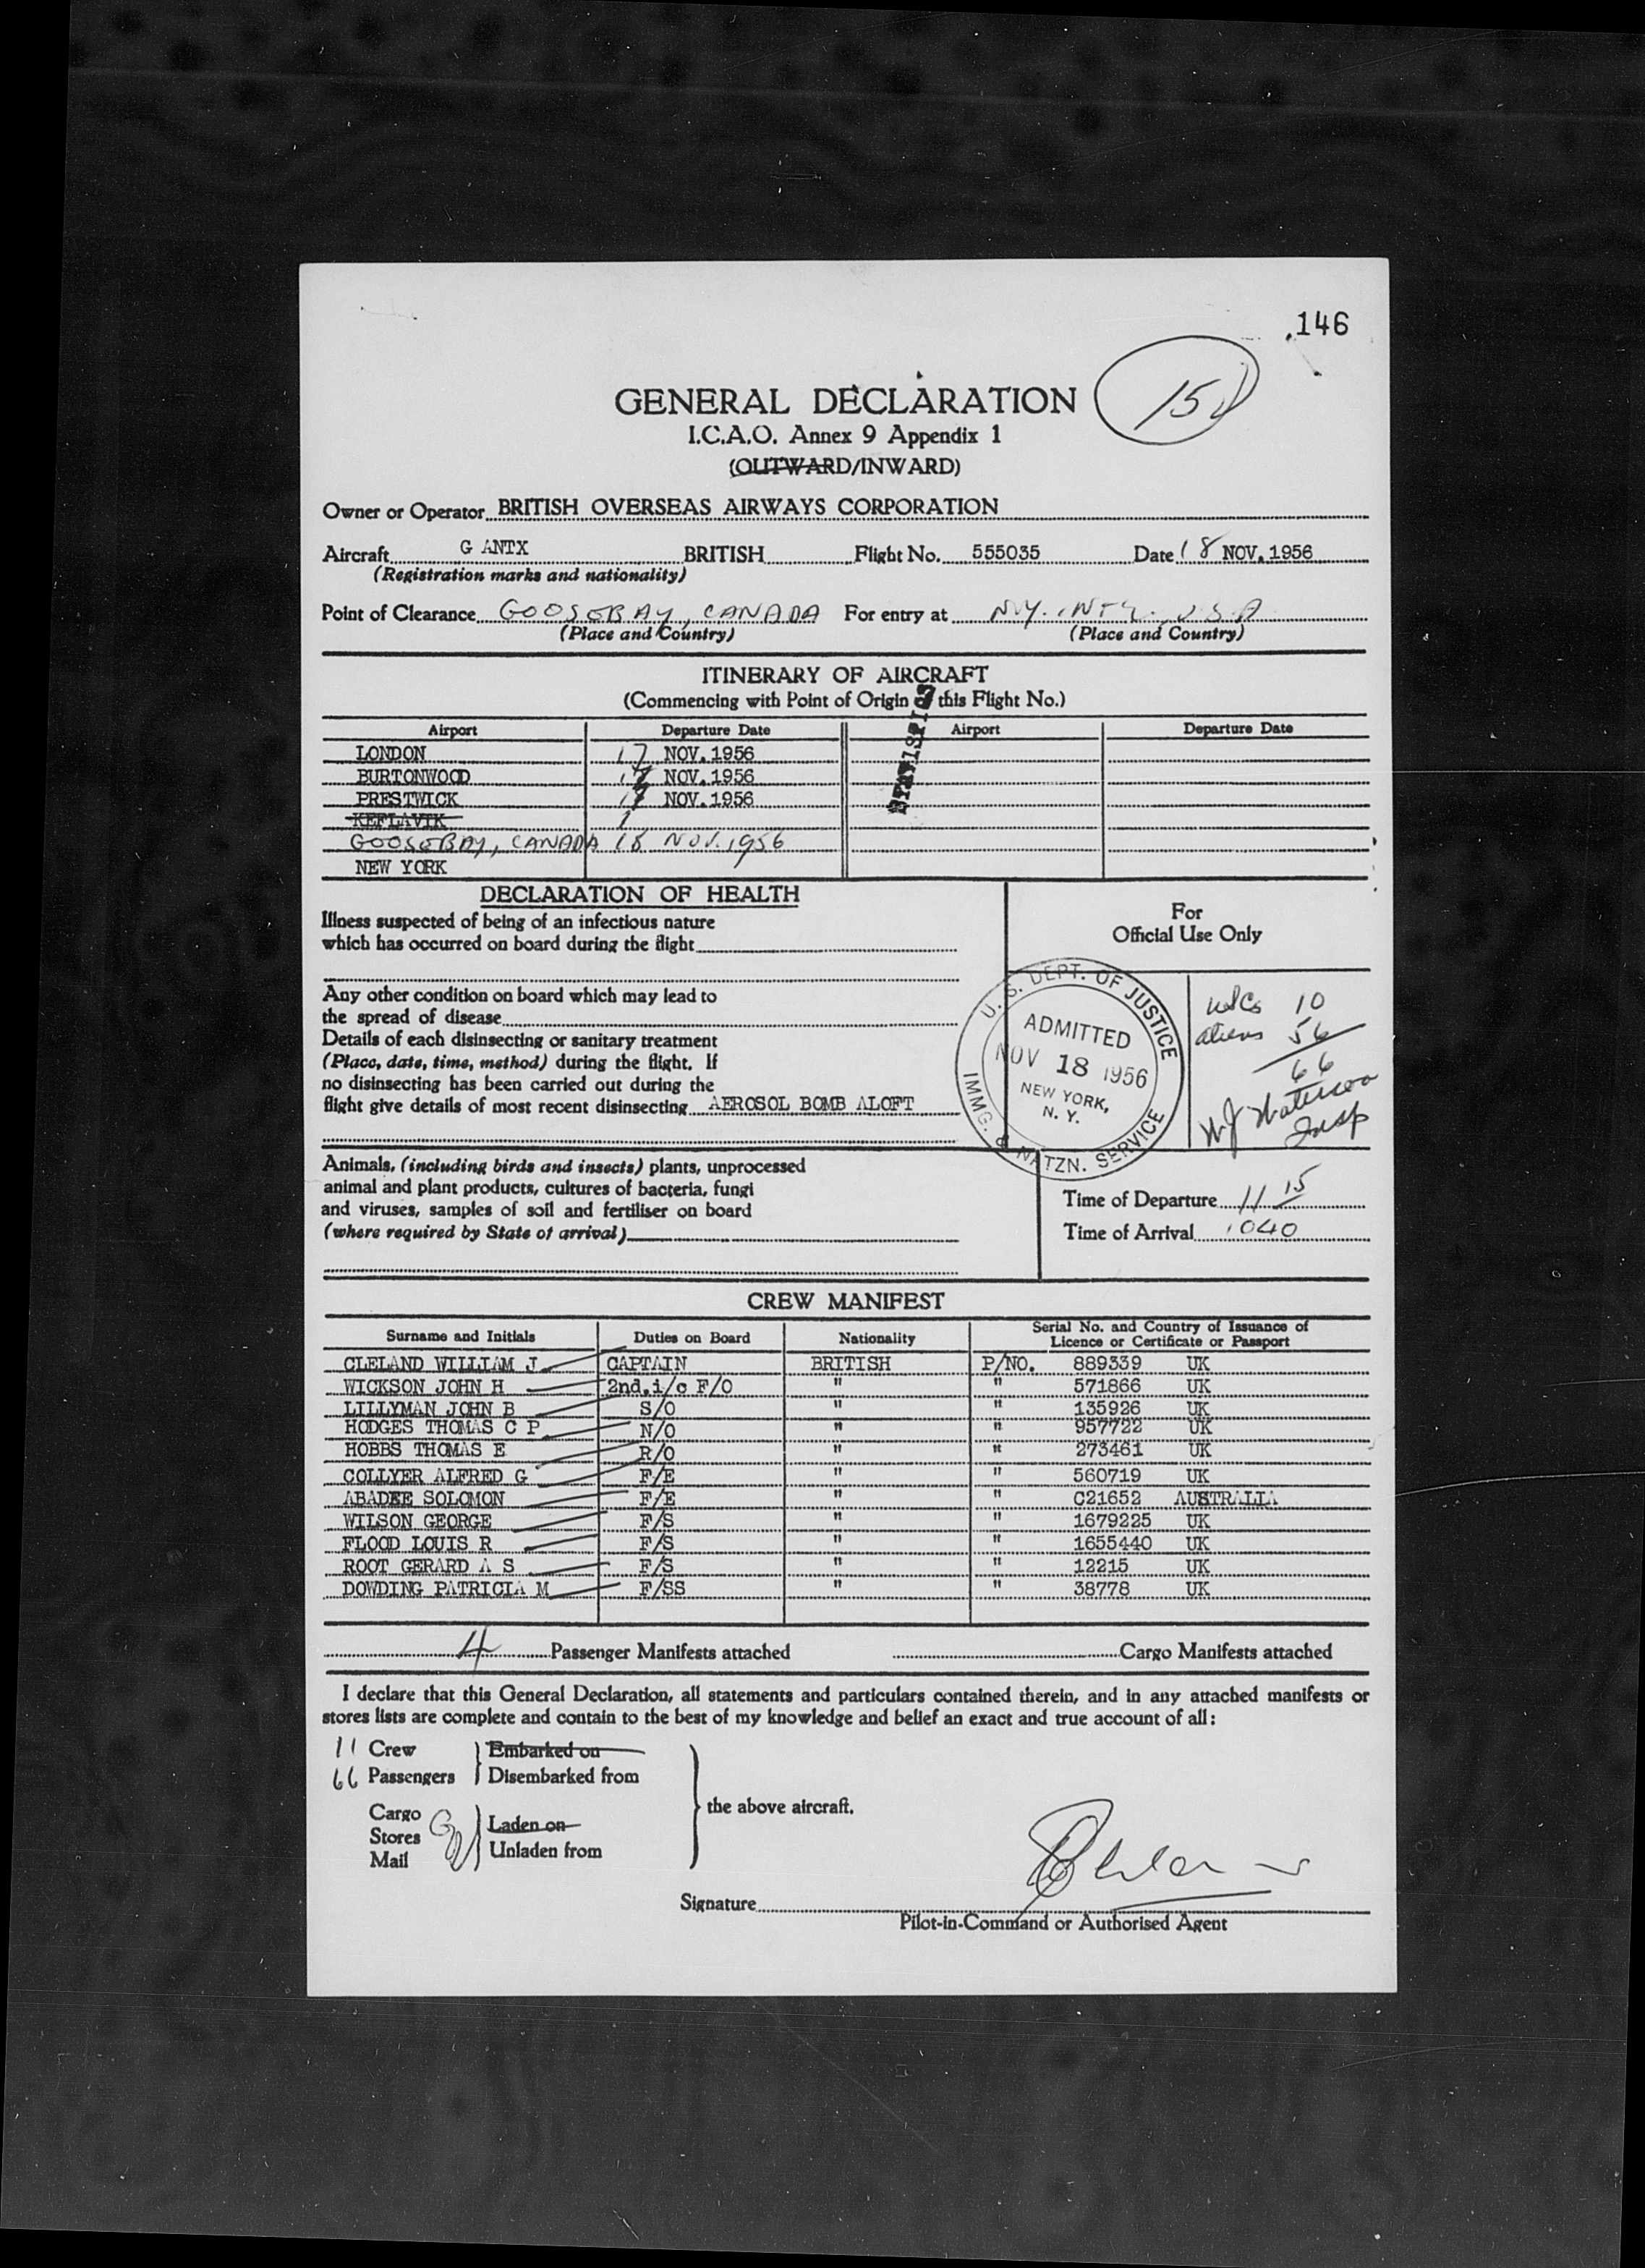 146
15
GENERAL DECLARATION
I.C.A.O. Annex 9 Appendix 1
(OUTWARD/INWARD)
Owner or Operator BRITISH OVERSEAS AIRWAYS CORPORATION
Aircraft G ANTX BRITISH Flight No. 555035 Date 18 NOV. 1956
(Registration marks and nationality)
Point of Clearance GOOSEBAY, CANADA For entry at N.Y. INTL. U.S.A
(Place and Country) (Place and Country)
ITINERARY OF AIRCRAFT
(Commencing with Point of Origin of this Flight No.)
Airport Departure Date Airport Departure Date
LONDON 17 NOV. 1956
BURTONWOOD 17 NOV. 1956
PRESTWICK 17 NOV. 1956
KEFLAVIK
GOOSEBAY, CANADA 18 NOV. 1956
NEW YORK
DECLARATION OF HEALTH
Illness suspected of being of an infectious nature
which has occurred on board during the flight
For
Official Use Only
Any other condition on board which may lead to
the spread of disease
Details of each disinsecting or sanitary treatment
(Place, date, time, method) during the flight. If
no disinsecting has been carried out during the
flight give details of most recent disinsecting AEROSOL BOMB ALOFT
U. S. DEPT. OF JUSTICE
ADMITTED
NOV 18 1956
NEW YORK,
N. Y.
IMMG. & NATZN. SERVICE
USCs 10
aliens 56
66
Insp
Animals, (including birds and insects) plants, unprocessed
animal and plant products, cultures of bacteria, fungi
and viruses, samples of soil and fertiliser on board
(where required by State of arrival)
Time of Departure 11 15
Time of Arrival 1040
CREW MANIFEST
Surname and Initials Duties on Board Nationality Serial No. and Country of Issuance of
Licence or Certificate or Passport
CLELAND WILLIAM J CAPTAIN BRITISH P/NO. 889339 UK
WICKSON JOHN H 2nd.i/c F/O " " 571866 UK
LILLYMAN JOHN B S/O " " 135926 UK
HODGES THOMAS C P N/O " " 957722 UK
HOBBS THOMAS E R/O " " 273461 UK
COLLYER ALFRED G F/E " " 560719 UK
ABADEE SOLOMON F/E " " C21652 AUSTRALIA
WILSON GEORGE F/S " " 1679225 UK
FLOOD LOUIS R F/S " " 1655440 UK
ROOT GERARD A S F/S " " 12215 UK
DOWDING PATRICIA M F/SS " " 38778 UK
4 Passenger Manifests attached Cargo Manifests attached
I declare that this General Declaration, all statements and particulars contained therein, and in any attached manifests or
stores lists are complete and contain to the best of my knowledge and belief an exact and true account of all:
11 Crew Embarked on
66 Passengers Disembarked from
the above aircraft.
Cargo
Stores
Mail
Laden on
Unladen from
Signature
Pilot-in-Command or Authorised Agent